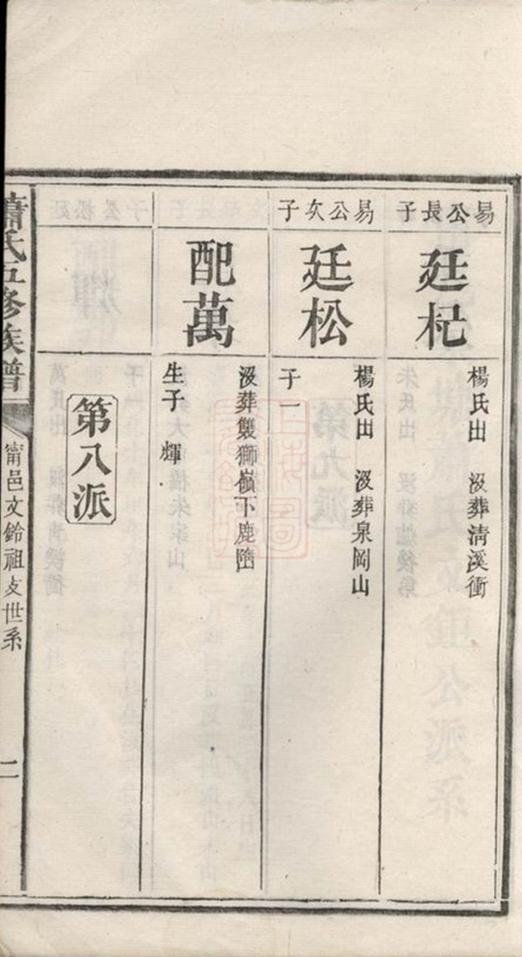 易公長子
廷杞
楊氏出 没葬清溪衝
易公次子
廷松
楊氏出 没葬泉岡山
子一
配萬
没葬製獅嶺下鹿
生子 輝
第八派
蕭氏五修族譜
甯邑文鈴祖支世系
二